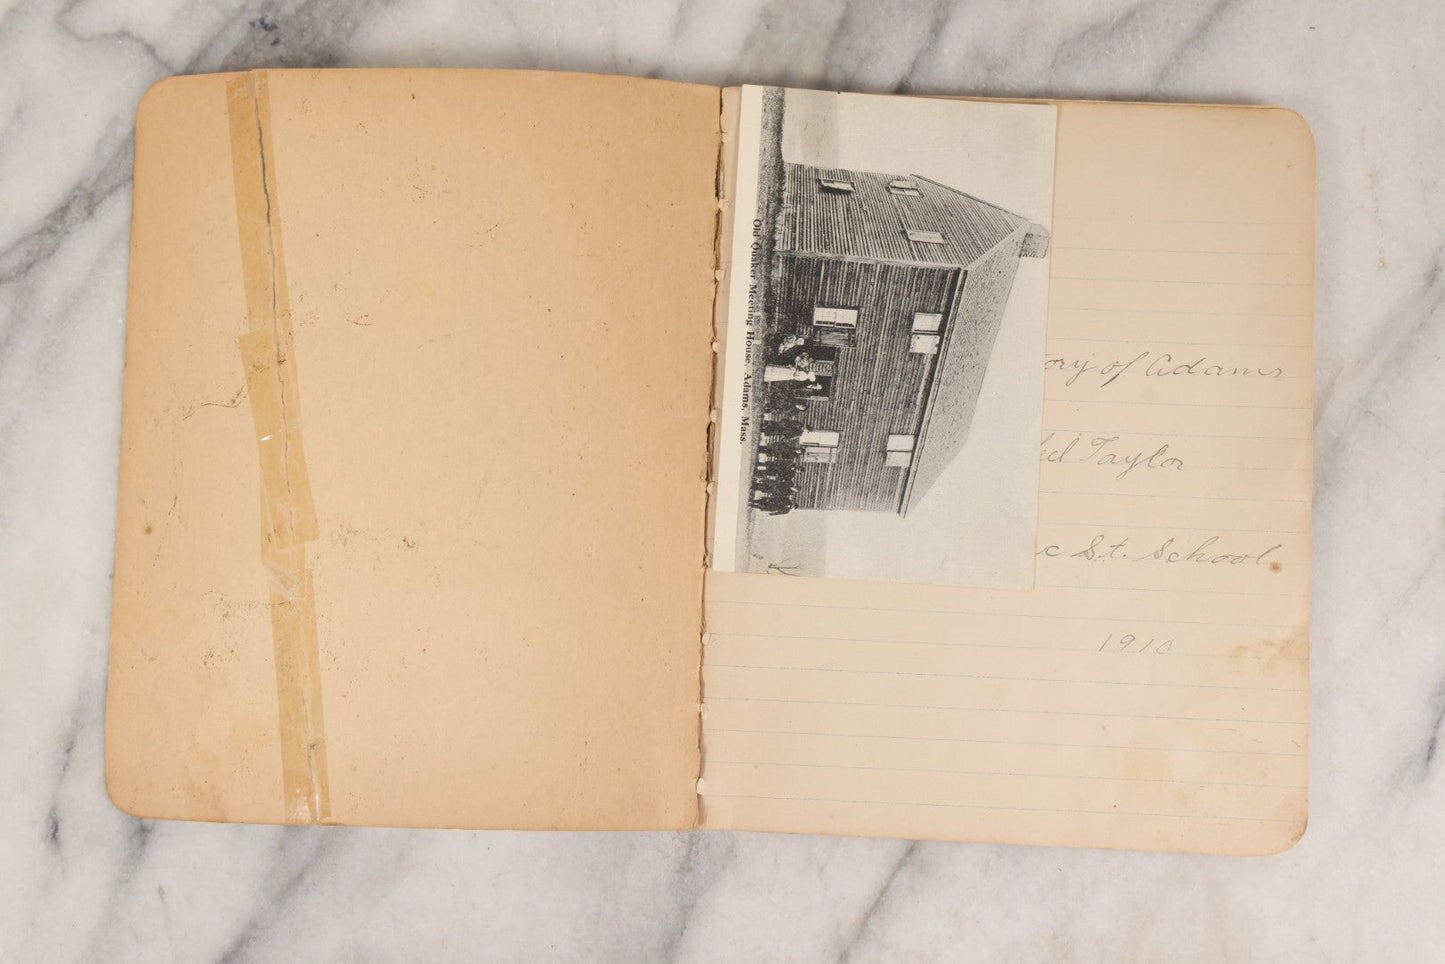 Old Quaker Meeting House, Adams, Mass.
ory of Adams
Taylor
c St. School
1910